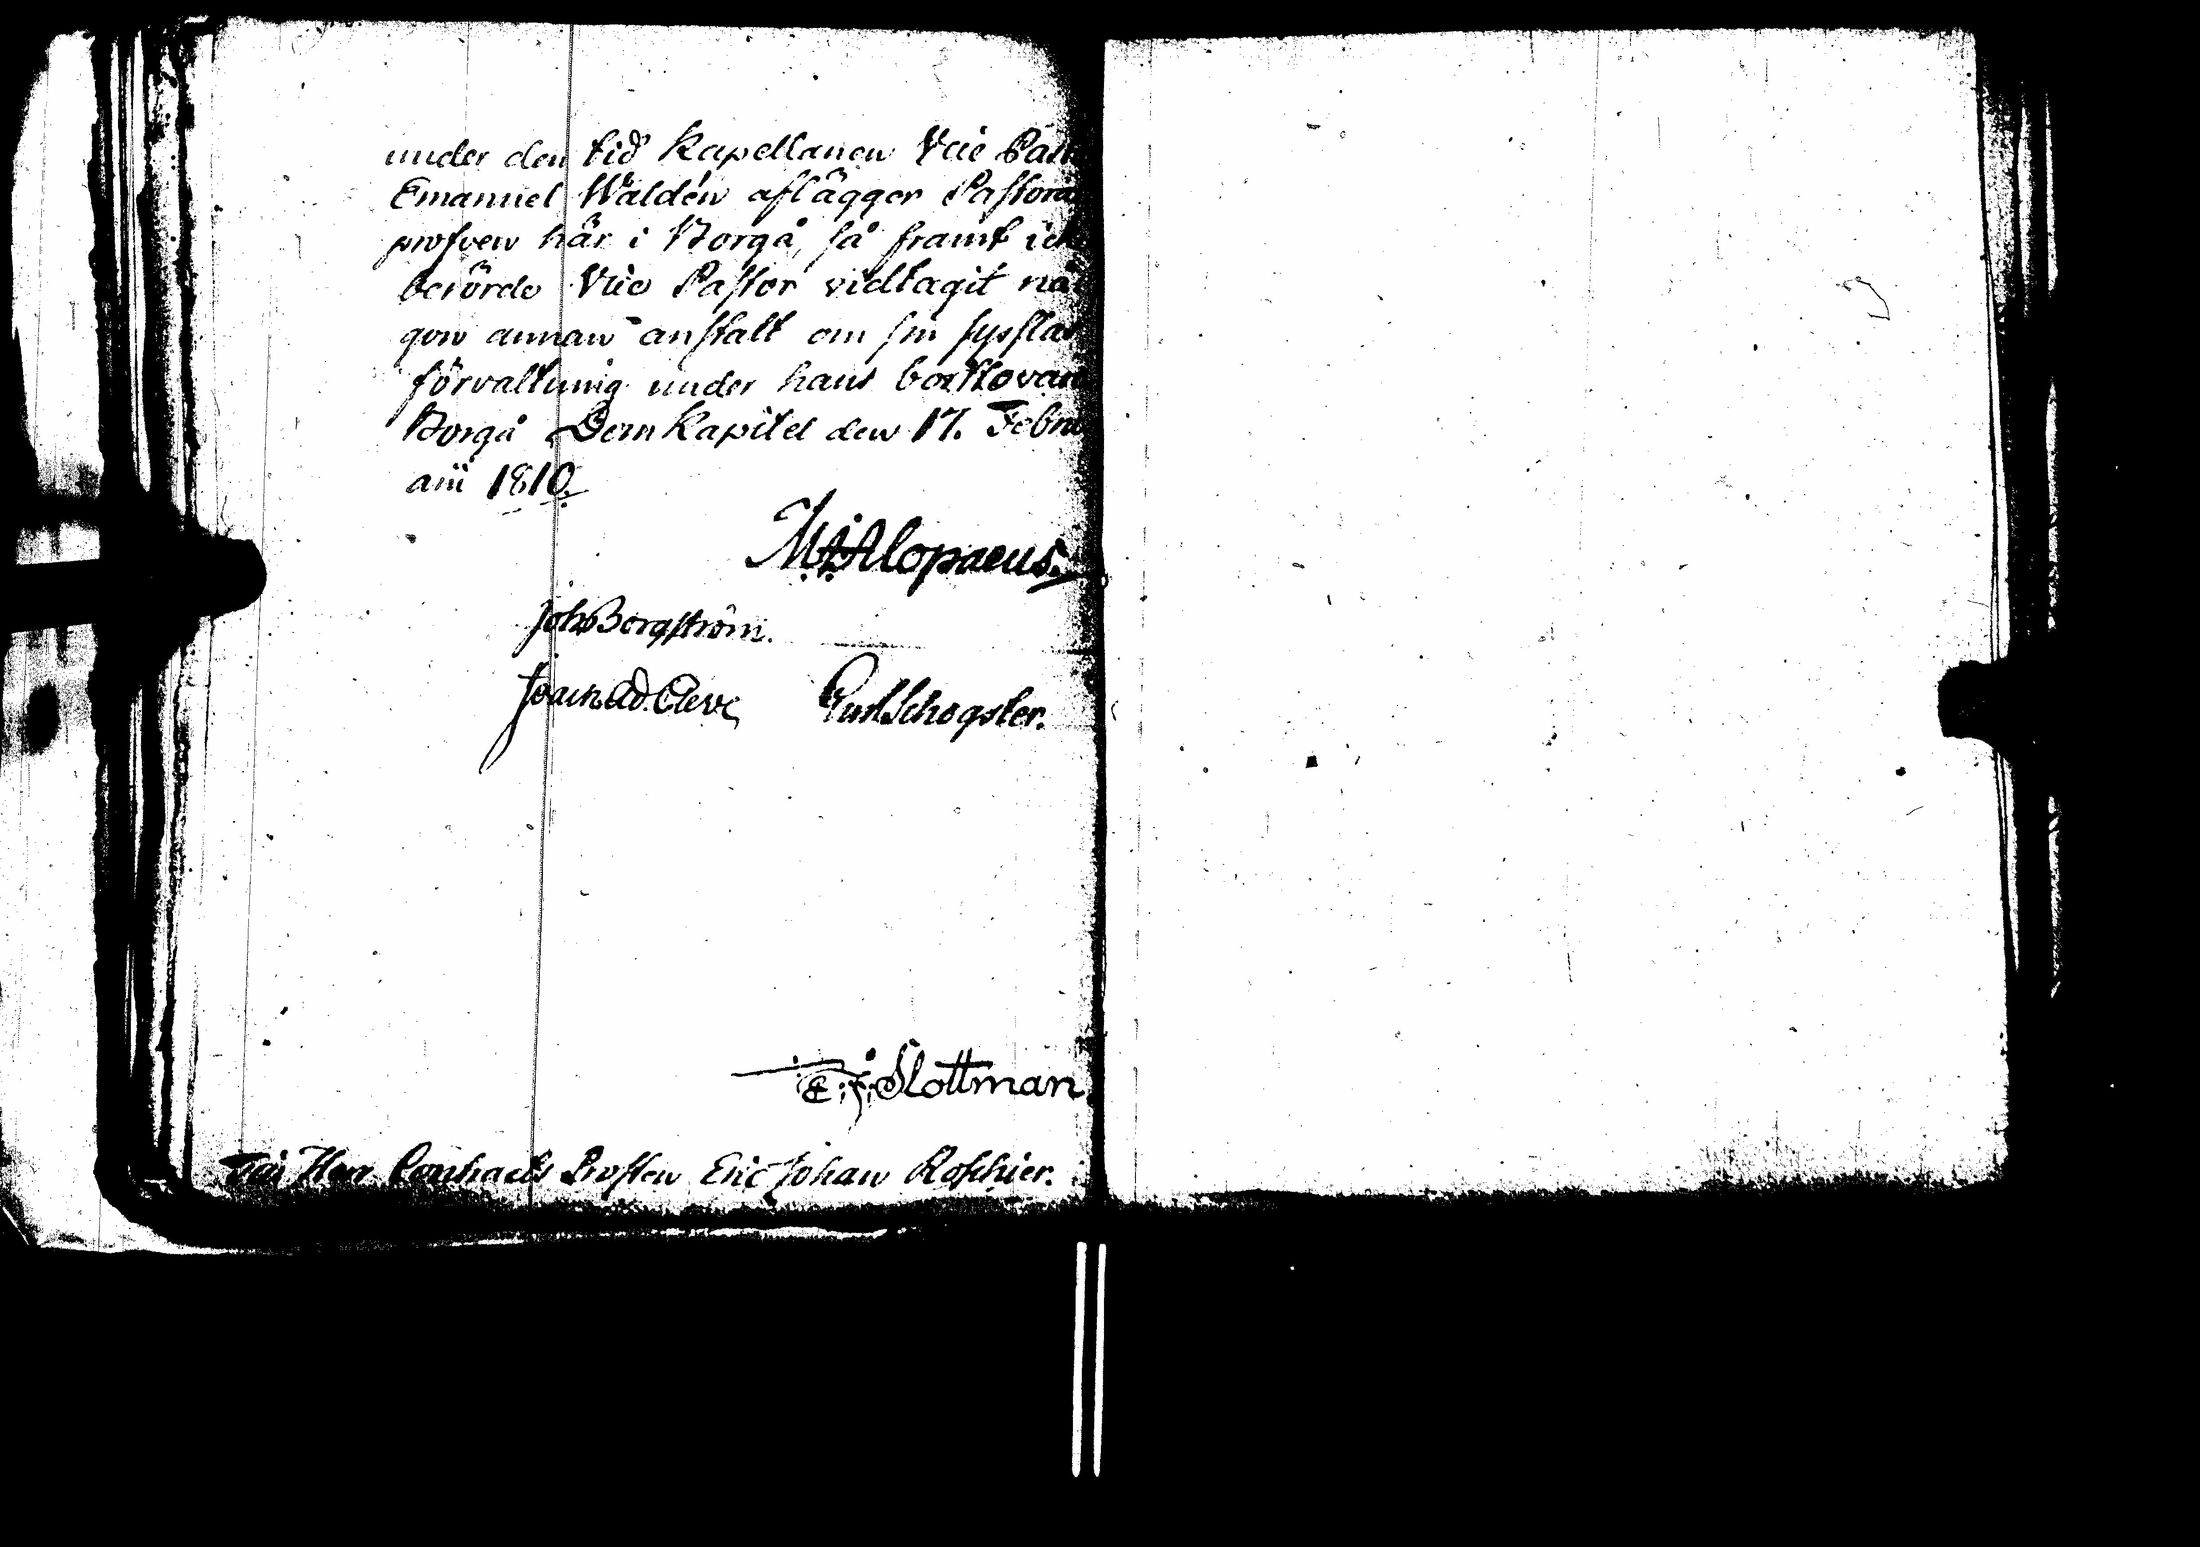 under den tid Kapellanen Vice Past
Emanuel Waldén aflägger Pastora
profven här i Borgå, så framt ick
berörde Vice Pastor vidtagit nå
gon annan anstalt om sin syslas
förvaltning under hans bortovar
Borgå Dom Kapitel den 17. Febru
arii 1810.
M. Alopaeus.
Joh Borgström.
Joach. Ad. Cleve Gust Schogster.
E. J. Slottman
Till Herr Contracts Prosten Eric Johan Roschier.